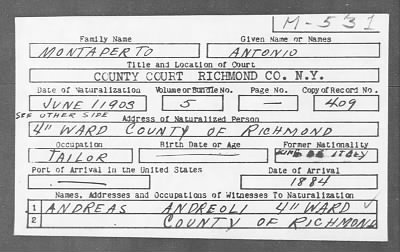 M-531
Family Name Given Name or Names
MONTAPERTO ANTONIO
Title and Location of Court
COUNTY COURT RICHMOND CO. N.Y.
Date of Naturalization Volume or Bundle No. Page No. Copy of Record No.
JUNE 1 1903 5 — 409
SEE OTHER SIDE
Address of Naturalized Person
4" WARD COUNTY OF RICHMOND
Occupation Birth Date or Age Former Nationality
TAILOR ITALY
Port of Arrival in the United States Date of Arrival
1884
Names, Addresses and Occupations of Witnesses To Naturalization
1 ANDREAS ANDREOLI 4" WARD
2 COUNTY OF RICHMOND